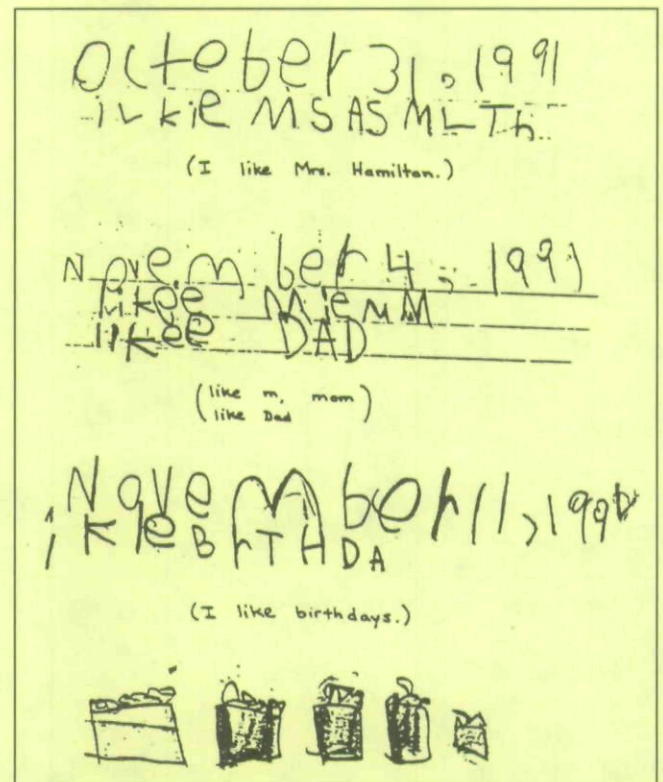 October 31, 1991
iLkie MSASMLTh
(I like Mrs. Hamilton.)
November 4, 1991
likee MieMM
likee DAD
(like m, mom)
like Dad
November 11, 199
i kle BrTHDA
(I like birthdays.)